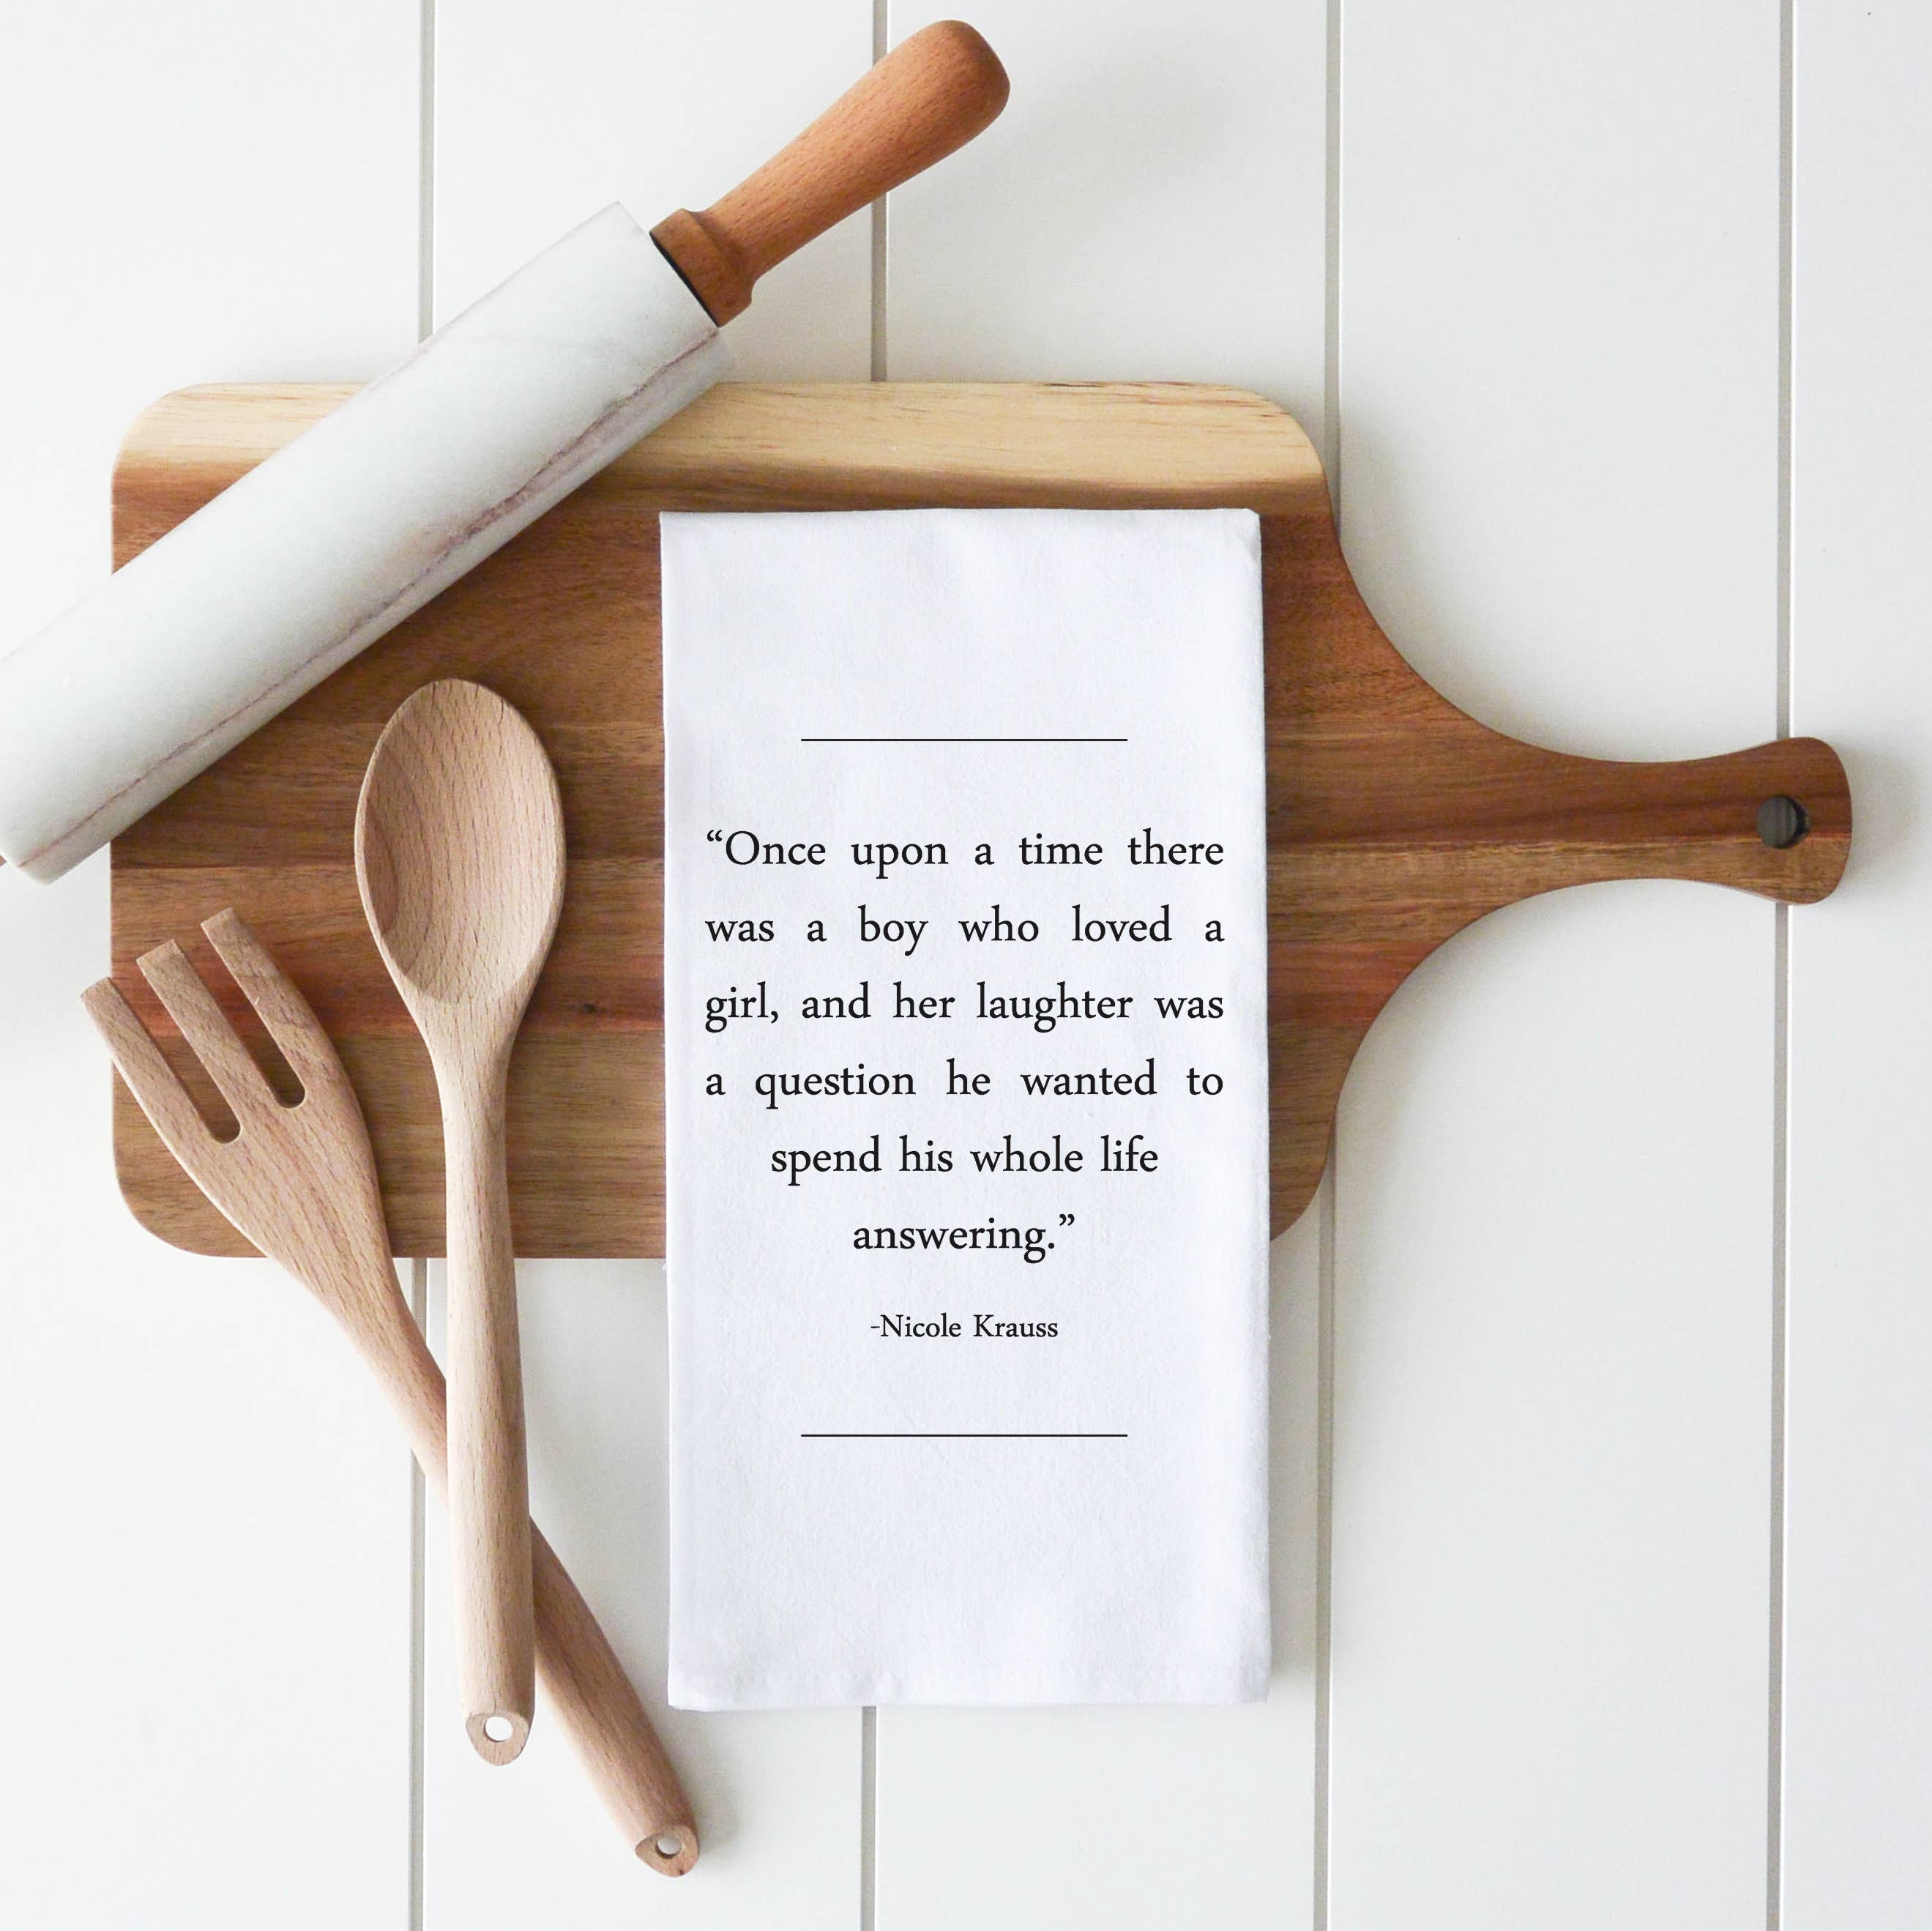 “Once upon a time there
was a boy who loved a
girl, and her laughter was
a question he wanted to
spend his whole life
answering.”
-Nicole Krauss